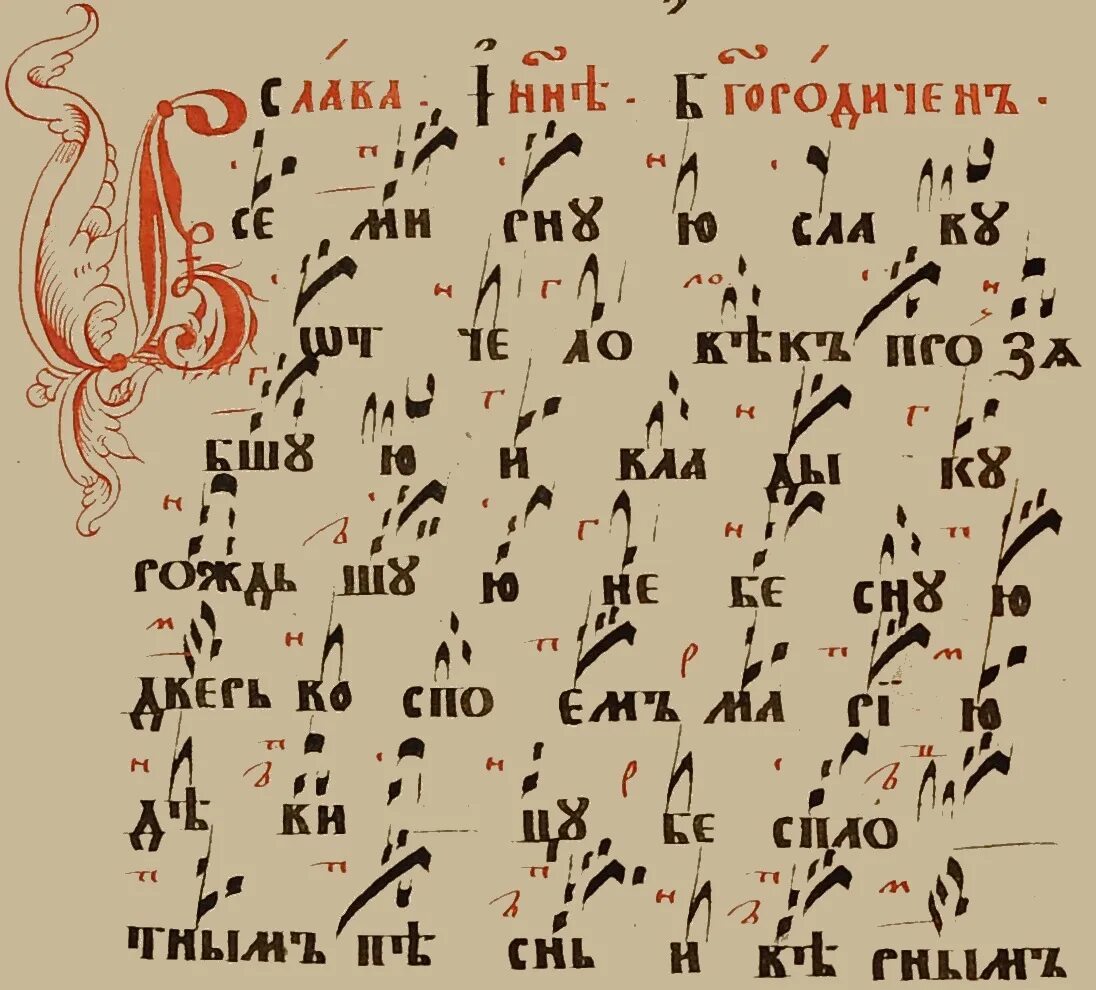 Сла́ва . І҆ нн҃ѣ . Бг҃оро́диченъ .
Все ми рнꙋ ю сла вꙋ
ѿ че ло вѣкъ про зѧ
бшꙋ ю и вла ды кꙋ
рождь шꙋ ю не бе снꙋ ю
дверь во спо емъ ма рї ю
дѣ ви цꙋ бе спло
тнымъ пѣ снь и вѣ рнымъ